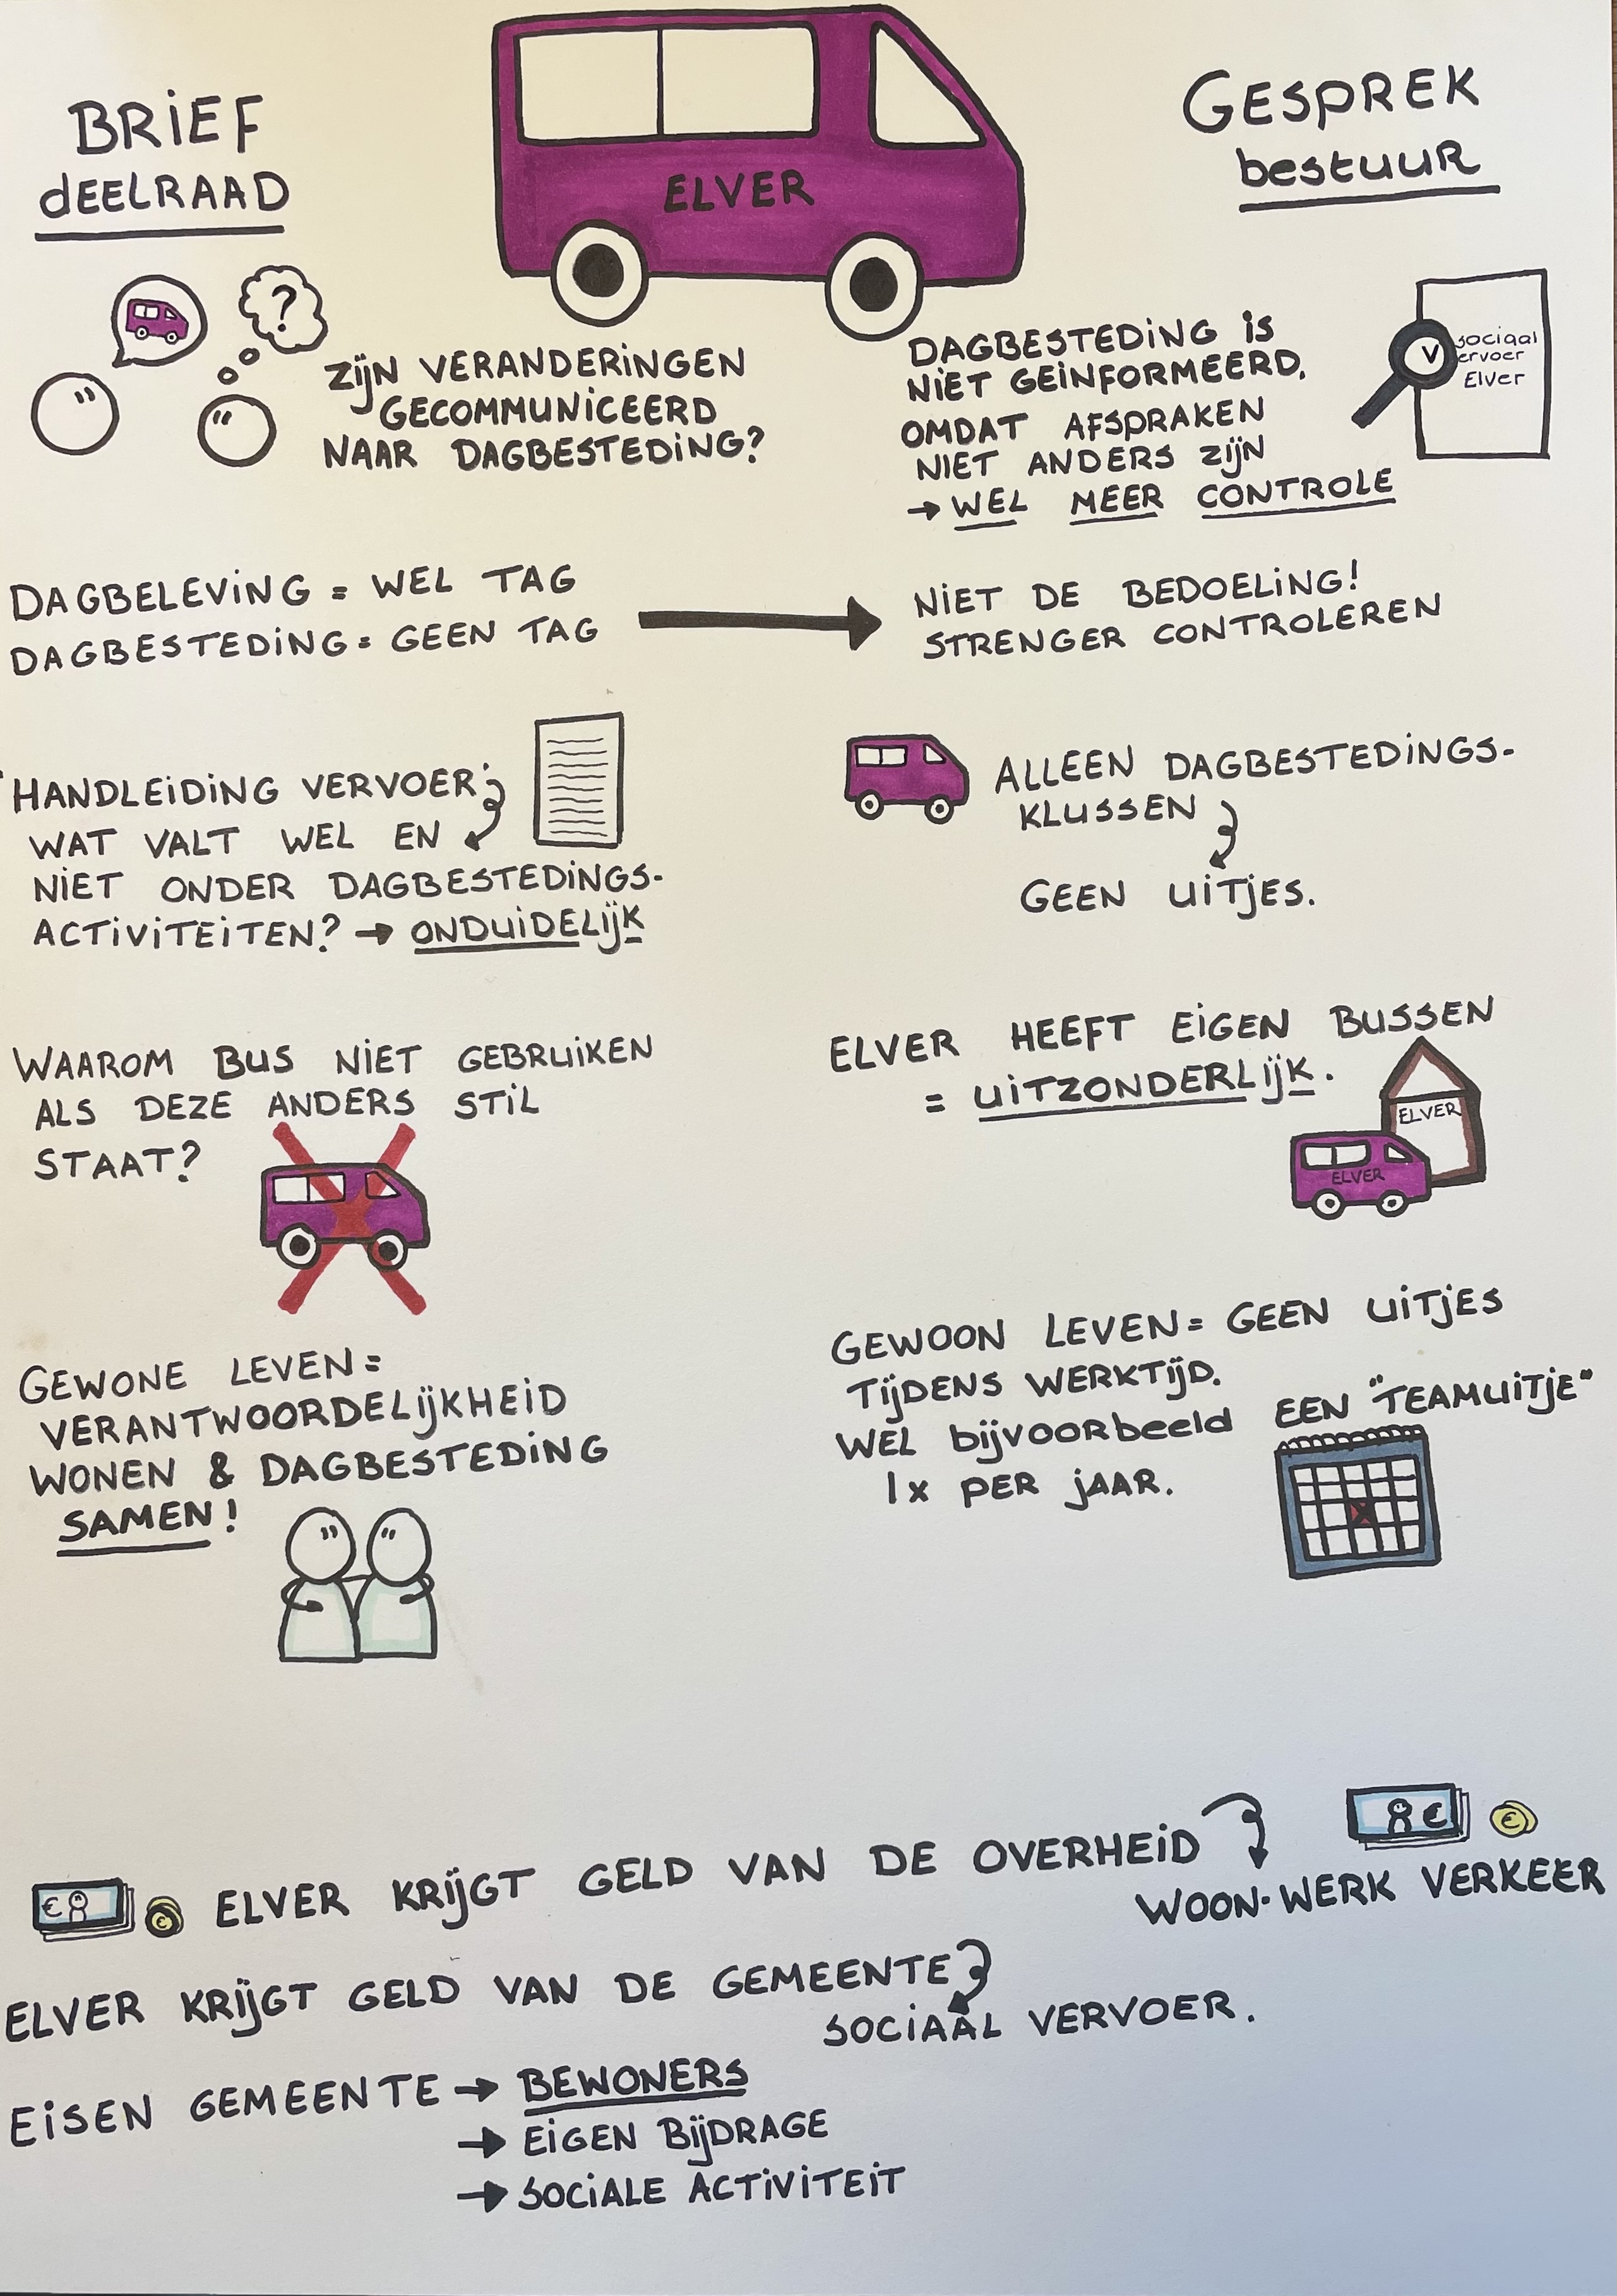 BRIEF
dEELRAAD
ELVER
GESPREK
bestuur
?
ZIJN VERANDERINGEN
GECOMMUNICEERD
NAAR DAGBESTEDING?
DAGBESTEDING IS
NIET GEINFORMEERD,
OMDAT AFSPRAKEN
NIET ANDERS ZIJN
→ WEL MEER CONTROLE
sociaal
Vervoer
Elver
DAGBELEVING = WEL TAG
DAGBESTEDING = GEEN TAG
NIET DE BEDOELING!
STRENGER CONTROLEREN
'HANDLEIDING VERVOER'
WAT VALT WEL EN
NIET ONDER DAGBESTEDINGS-
ACTIVITEITEN? → ONDUIDELIJK
ALLEEN DAGBESTEDINGS-
KLUSSEN
GEEN UITJES.
WAAROM BUS NIET GEBRUIKEN
ALS DEZE ANDERS STIL
STAAT?
ELVER HEEFT EIGEN BUSSEN
= UITZONDERLIJK.
ELVER
ELVER
GEWONE LEVEN =
VERANTWOORDELIJKHEID
WONEN & DAGBESTEDING
SAMEN!
GEWOON LEVEN = GEEN UITJES
TIJDENS WERKTIJD.
WEL bijvoorbeeld EEN "TEAMUITJE"
1x PER JAAR.
€ €
€ €
ELVER KRIJGT GELD VAN DE OVERHEID
WOON-WERK VERKEER
ELVER KRIJGT GELD VAN DE GEMEENTE
SOCIAAL VERVOER.
EISEN GEMEENTE → BEWONERS
→ EIGEN BIJDRAGE
→ SOCIALE ACTIVITEIT